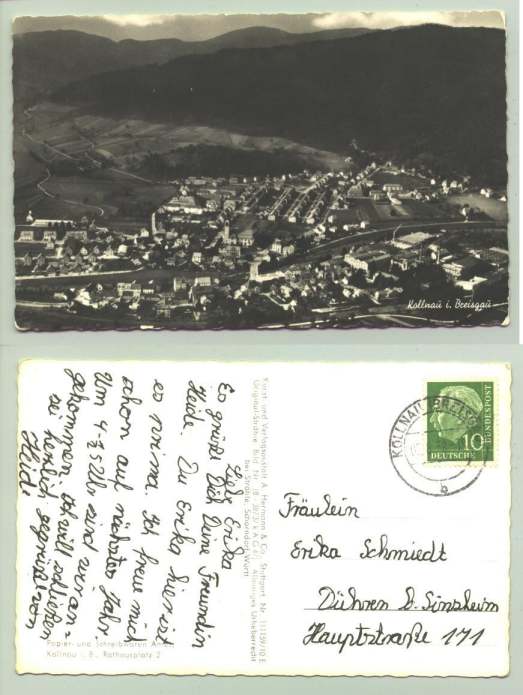 Kollnau i. Breisgau
Liebe Erika
Es grüßt Dich Deine Freundin
Heide. Du Erika hier ist
es prima. Ich freue mich
schon auf nächstes Jahr.
Um 4-½5 Uhr sind wir an=
gekommen. Ich will schließen
sei herzlich gegrüßt von
Heide
Papier- und Schreibwaren
Kollnau i. B., Rathausplatz 2
Kunst- und Verlagsanstalt A. Hermann & Co. Stuttgart. Nr. 11159/10 E
Original-Strähle-Bild Nr. Alleiniges Urheberrecht
bei Strähle, Schorndorf-Württ.
KOLLNAU (BREISG
b
10
DEUTSCHE
BUNDESPOST
Fräulein
Erika Schmiedt
Dühren b. Sinsheim
Hauptstraße 171